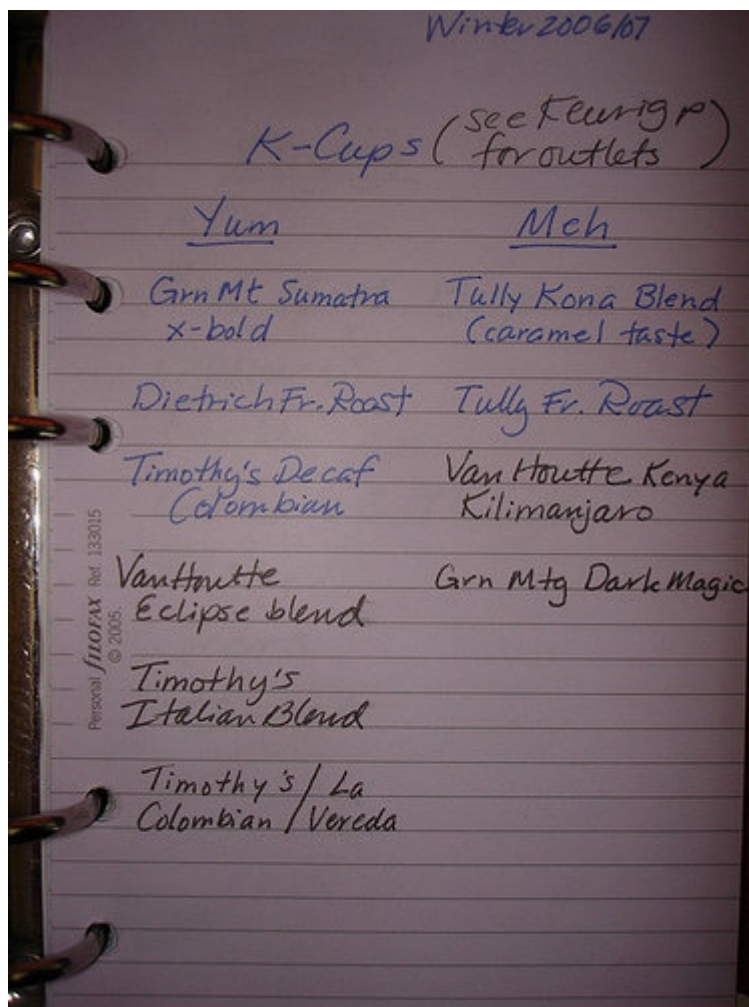 Winter 2006/07
K-Cups (see Keurig p
for outlets)
Yum
Grn Mt Sumatra
x-bold
Dietrich Fr. Roast
Timothy's Decaf
Colombian
Van Houtte
Eclipse blend
Timothy's
Italian Blend
Timothy's / La
Colombian / Vereda
Meh
Tully Kona Blend
(caramel taste)
Tully Fr. Roast
Van Houtte Kenya
Kilimanjaro
Grn Mtg Dark Magic
Personal FILOFAX Ref. 133015
© 2005.